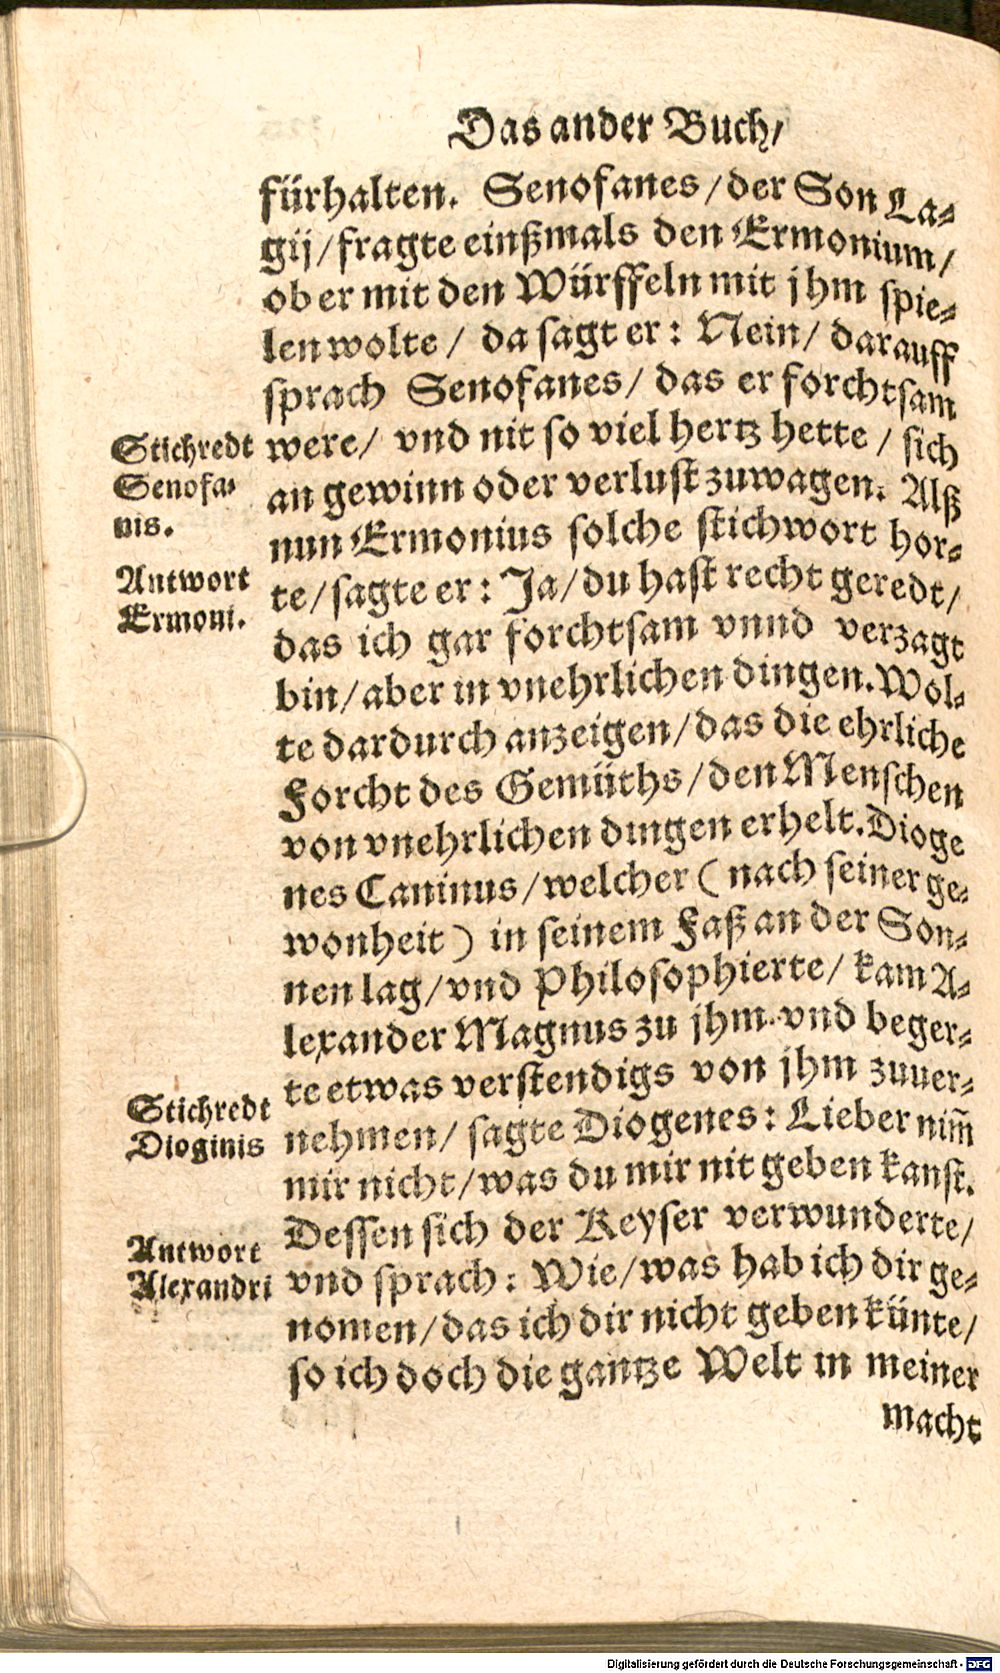 Das ander Buch/
fürhalten. Senofanes/der Son La⸗
gij/fragte einßmals den Ermonium/
ob er mit den Würffeln mit jhm spie⸗
len wolte/ da sagt er: Nein/ darauff
sprach Senofanes/ das er forchtsam
were/ vnd nit so viel hertz hette / sich
an gewinn oder verlust zuwagen. Alß
nun Ermonius solche stichwort hor⸗
te/sagte er: Ja/du hast recht geredt/
das ich gar forchtsam vnnd verzagt
bin/aber in vnehrlichen dingen.Wol⸗
te dardurch anzeigen/das die ehrliche
Forcht des Gemüths/den Menschen
von vnehrlichen dingen erhelt.Dioge
nes Caninus/welcher ( nach seiner ge⸗
wonheit ) in seinem Faß an der Son⸗
nen lag/vnd Philosophierte/ kam A⸗
lexander Magnus zu jhm.vnd beger⸗
te etwas verstendigs von jhm zuuer⸗
nehmen/ sagte Diogenes: Lieber nim̄
mir nicht/was du mir nit geben kanst.
Dessen sich der Keyser verwunderte/
vnd sprach: Wie/was hab ich dir ge⸗
nomen/das ich dir nicht geben künte/
so ich doch die gantze Welt in meiner
macht
Stichredt
Senofa⸗
nis.
Antwort
Ermoni.
Stichredt
Dioginis
Antwort
Alexandri
Digitalisierung gefördert durch die Deutsche Forschungsgemeinschaft - DFG